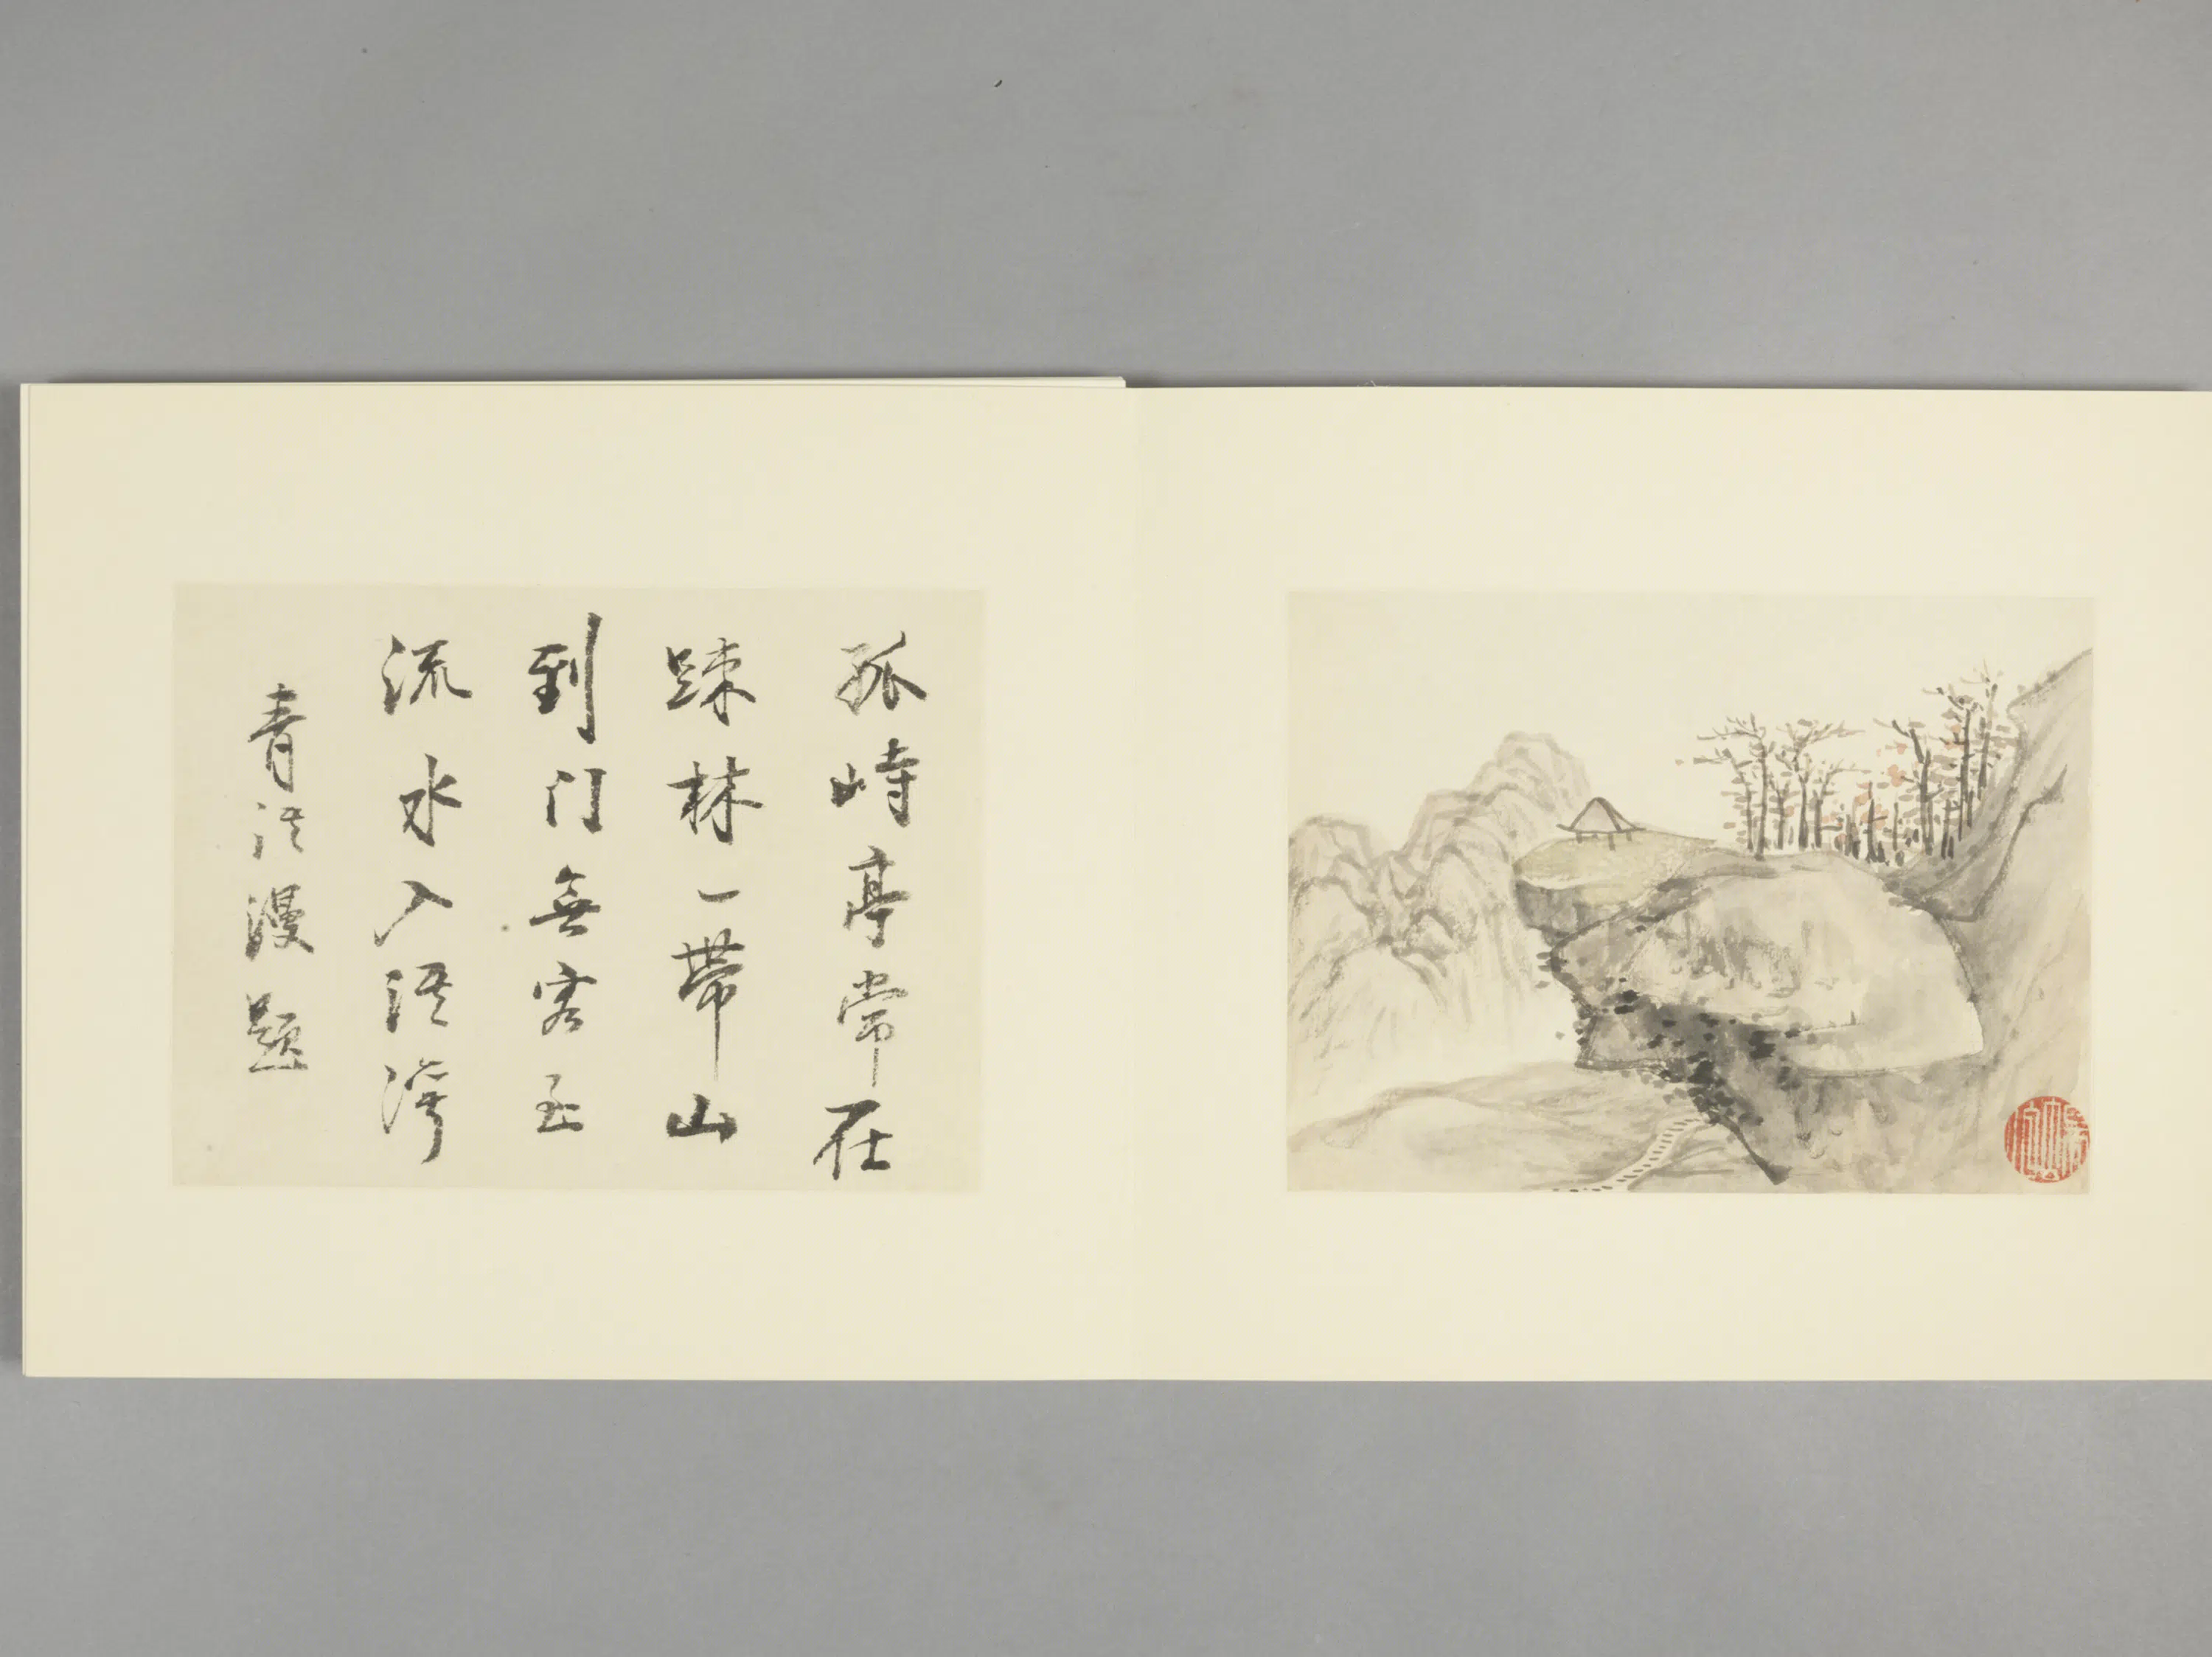 孤峙亭常在
踈林一帶山
到门無客至
流水入溪灣
青溪漫題